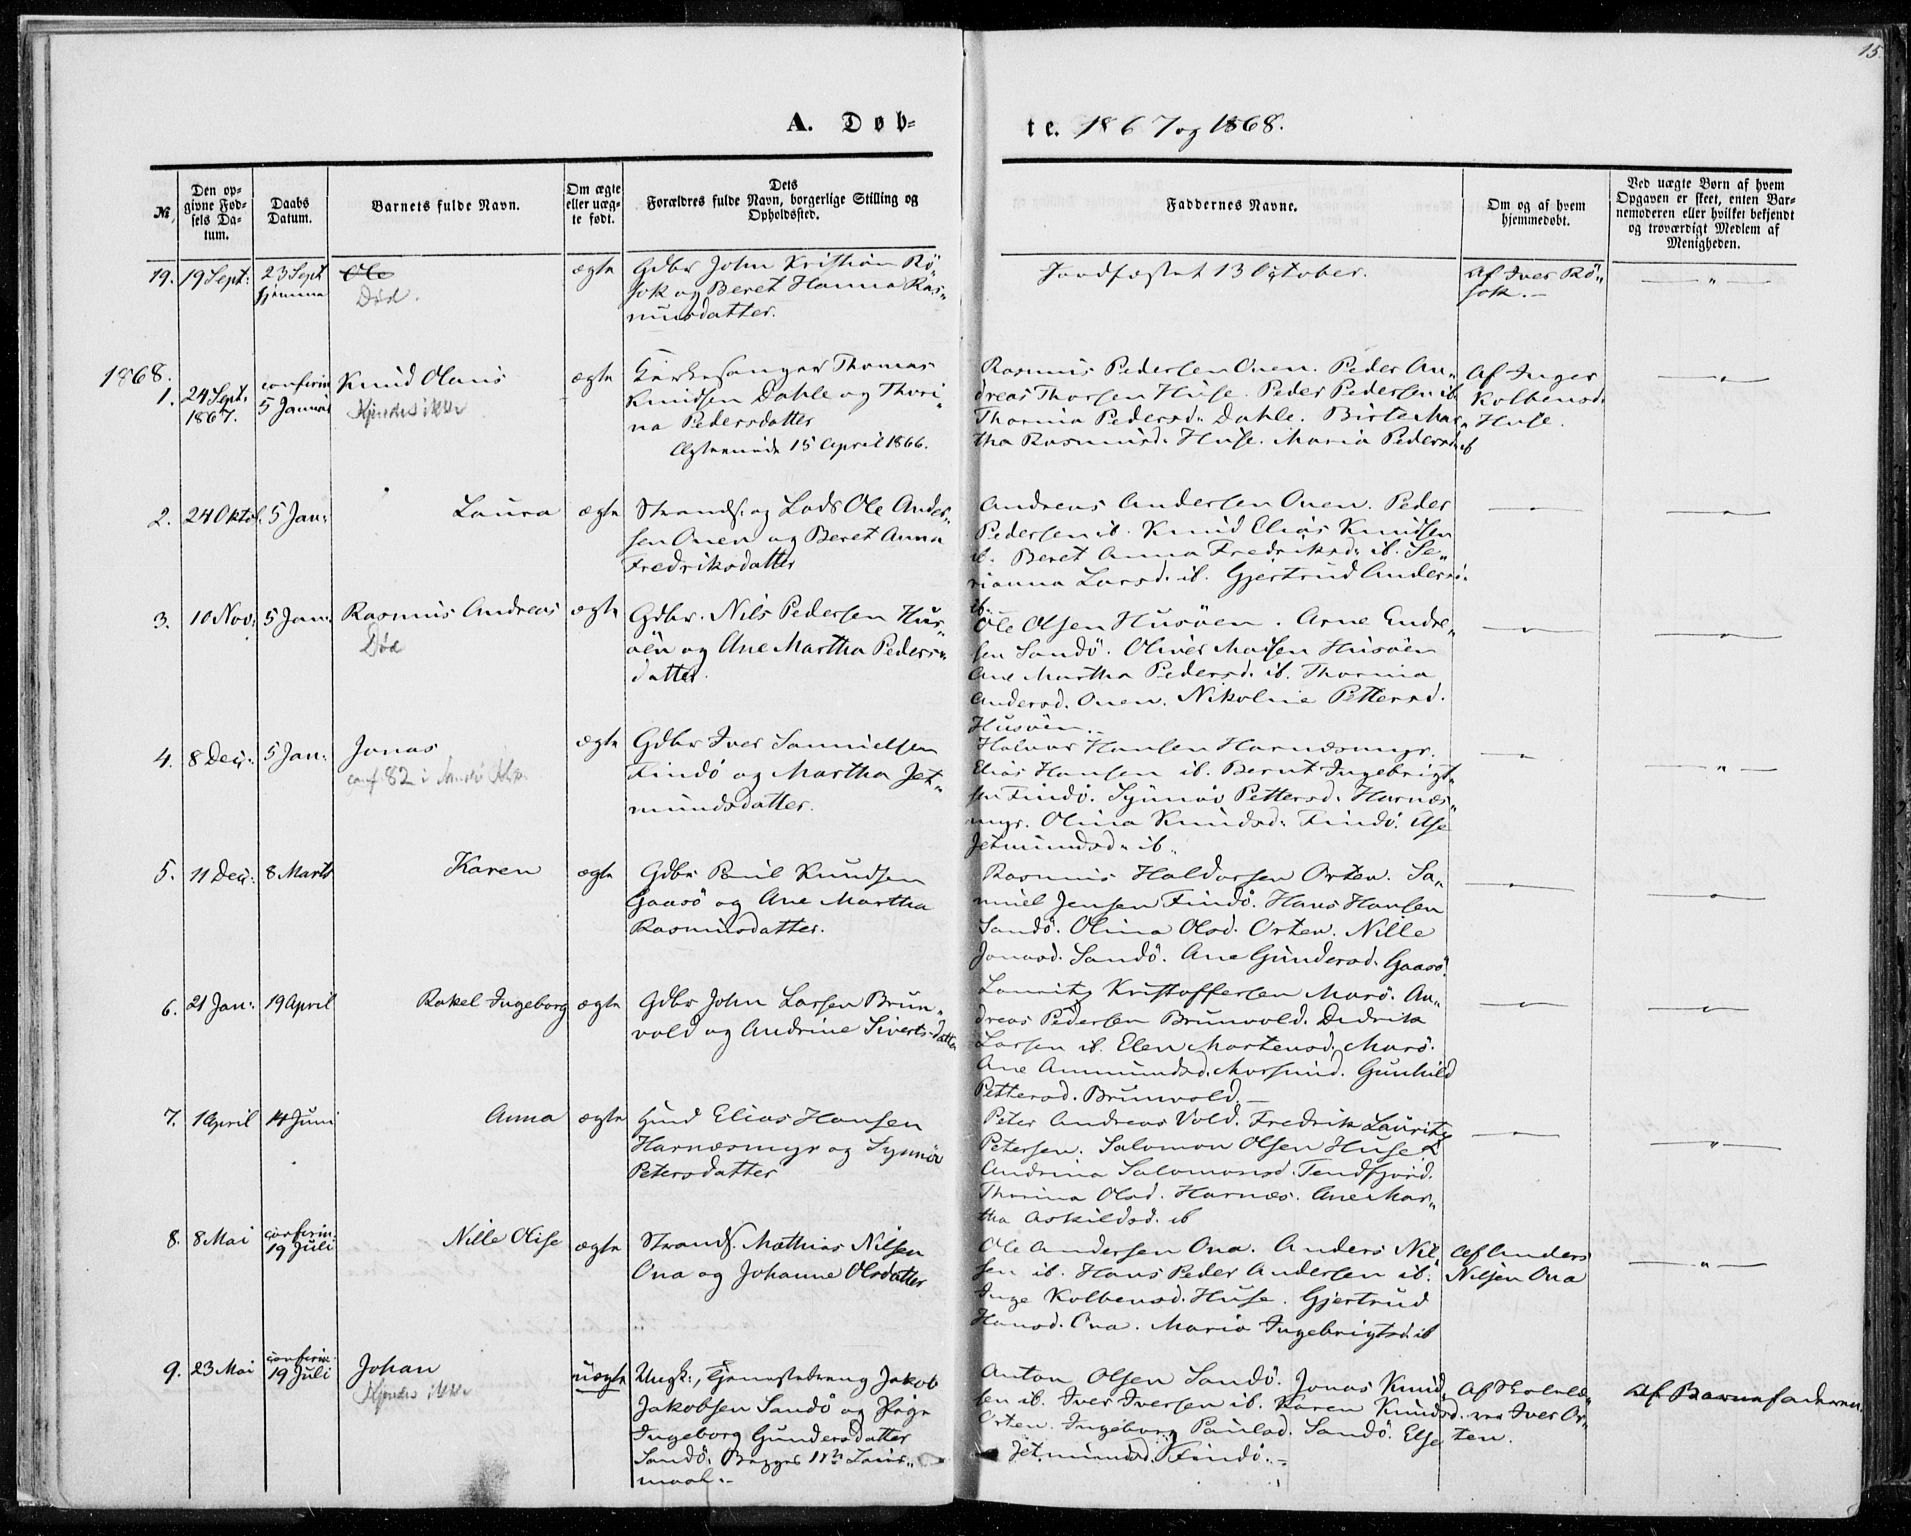 15.
A. Døb-
te. 1867 og 1868.
№
Den op-
givne Fød-
sels Da-
tum.
Daabs
Datum.
Barnets fulde Navn.
Om ægte
eller uæg-
te født.
Dets
Forældres fulde Navn, borgerlige Stilling og
Opholdssted.
Faddernes Navne.
Om og af hvem
hjemmedøbt.
Ved uægte Børn af hvem
Opgaven er skeet, enten Bar-
nemoderen eller hvilket bekjendt
og troværdigt Medlem af
Menigheden.
19. 19 Sept: 23 Sept
hjemme
Ole
Død.
ægte
Gdbr John Kristian Rø„
sok og Beret Hanna Ras„
musdatter.
Jordfæstet 13 October.
Af Iver Rö„
sok.–
1868.
1. 24 Sept.
1867.
confirm
5 Januar
Knud Olaus
Kjendes ikke
ægte
Kirkesanger Thomas
Knudsen Dahle og Thori„
na Pedersdatter
Ægteviede 15 April 1866.
Rasmus Pedersen Onen. Peder An„
dreas Thorsen Huse. Peder Pedersen ib
Thorina Pedersd. Dahle. Birte Mar„
tha Rasmusd. Huse. Maria Pedersd. ib
Af Inger
Kolbensd.
Huse.
2. 24 Oktob. 5 Jan:
Laura
ægte
Strands. og Lods Ole Ander„
sen Onen og Beret Anna
Fredriksdatter
Andreas Andersen Onen. Peder
Pedersen ib. Knud Elias Knudsen
ib. Beret Anna Fredriksd. ib. Se„
rianna Larsd. ib. Gjertrud Andersd.
ib.
3. 10 Nov: 5 Jan:
Rasmus Andreas
Død
ægte
Gdbr. Nils Pedersen Hus„
öen og Ane Martha Peders„
datter.
Ole Olsen Husöen. Arne Endre„
sen Sandö. Oliver Madsen Husöen
Ane Martha Pedersd. ib. Thorina
Andersd. Onen. Nikoline Pettersd.
Husöen.
4. 8 Dec: 5 Jan:
Jonas
conf. 82 i Sandö
ægte
Gdbr Iver Samuelsen
Findö og Martha Jet„
mundsdatter.
Halvor Hansen Harnæsmyr.
Elias Hansen ib. Bernt Ingebrigt„
sen Findö. Synnöv Pettersd. Harnæs„
myr. Olina Knudsd. Findö. Åse
Jetmundsd. ib.
5. 11 Dec: 8 Marts
Karen
ægte
Gdbr Emil Knudsen
Gaasö og Ane Martha
Rasmusdatter.
Rasmus Haldorsen Orten. Sa„
muel Jensen Findö. Hans Hansen
Sandö. Olina Olsd. Orten. Nille
Jonasd. Sandö. Ane Gundersd. Gaasö.
6. 21 Jan: 19 April
Rakel Ingeborg
ægte
Gdbr John Larsen Brun„
vold og Andrine Siverts-datter
Lauritz Kristoffersen Marö. An„
dreas Pedersen Brunvold. Didrik
Larsen ib. Elen Mortensd. Marö.
Ane Ammundsd. Morsund. Gunhild
Pettersd. Brunvold.–
7. 1 April 14 Juni
Anna
ægte
Hmd Elias Hansen
Harnæsmyr og Synnöv
Petersdatter
Peter Andreas Vold. Fredrik Lauritz
Petersen. Salomon Olsen Huse
Andrina Salomonsd. Tendfjord.
Thorina Olsd. Harnæs. Ane Mar„
tha Askildsd. ib
8. 8 Mai confirm:
19 Juli
Nille Olise
ægte
Strands. Mathias Nilsen
Ona og Johanne Olsdatter
Ole Andersen Ona. Anders Nil„
sen ib. Hans Peder Andersen ib.
Inge Kolbensd. Huse. Gjertrud
Hansd. Ona. Maria Ingebrigtsd. ib
Af Anders
Nilsen Ona
9. 23 Mai confirm:
19 Juli
Johan
Kjendes ikke
uægte
Ungk:, Tjenestedreng Jakob
Jakobsen Sandö og Pige
Ingeborg Gundersdatter
Sandö. Begges 1ste Leier„
maal.–
Anton Olsen Sandö. Jonas Knud„
sen ib. Iver Iversen ib. Karen Knudsd.
Orten. Ingeborg Paulsd. Sandö. Else
Jetmundsd. Findö.–
Iver Or„
ten.
Af Barnefaderen.